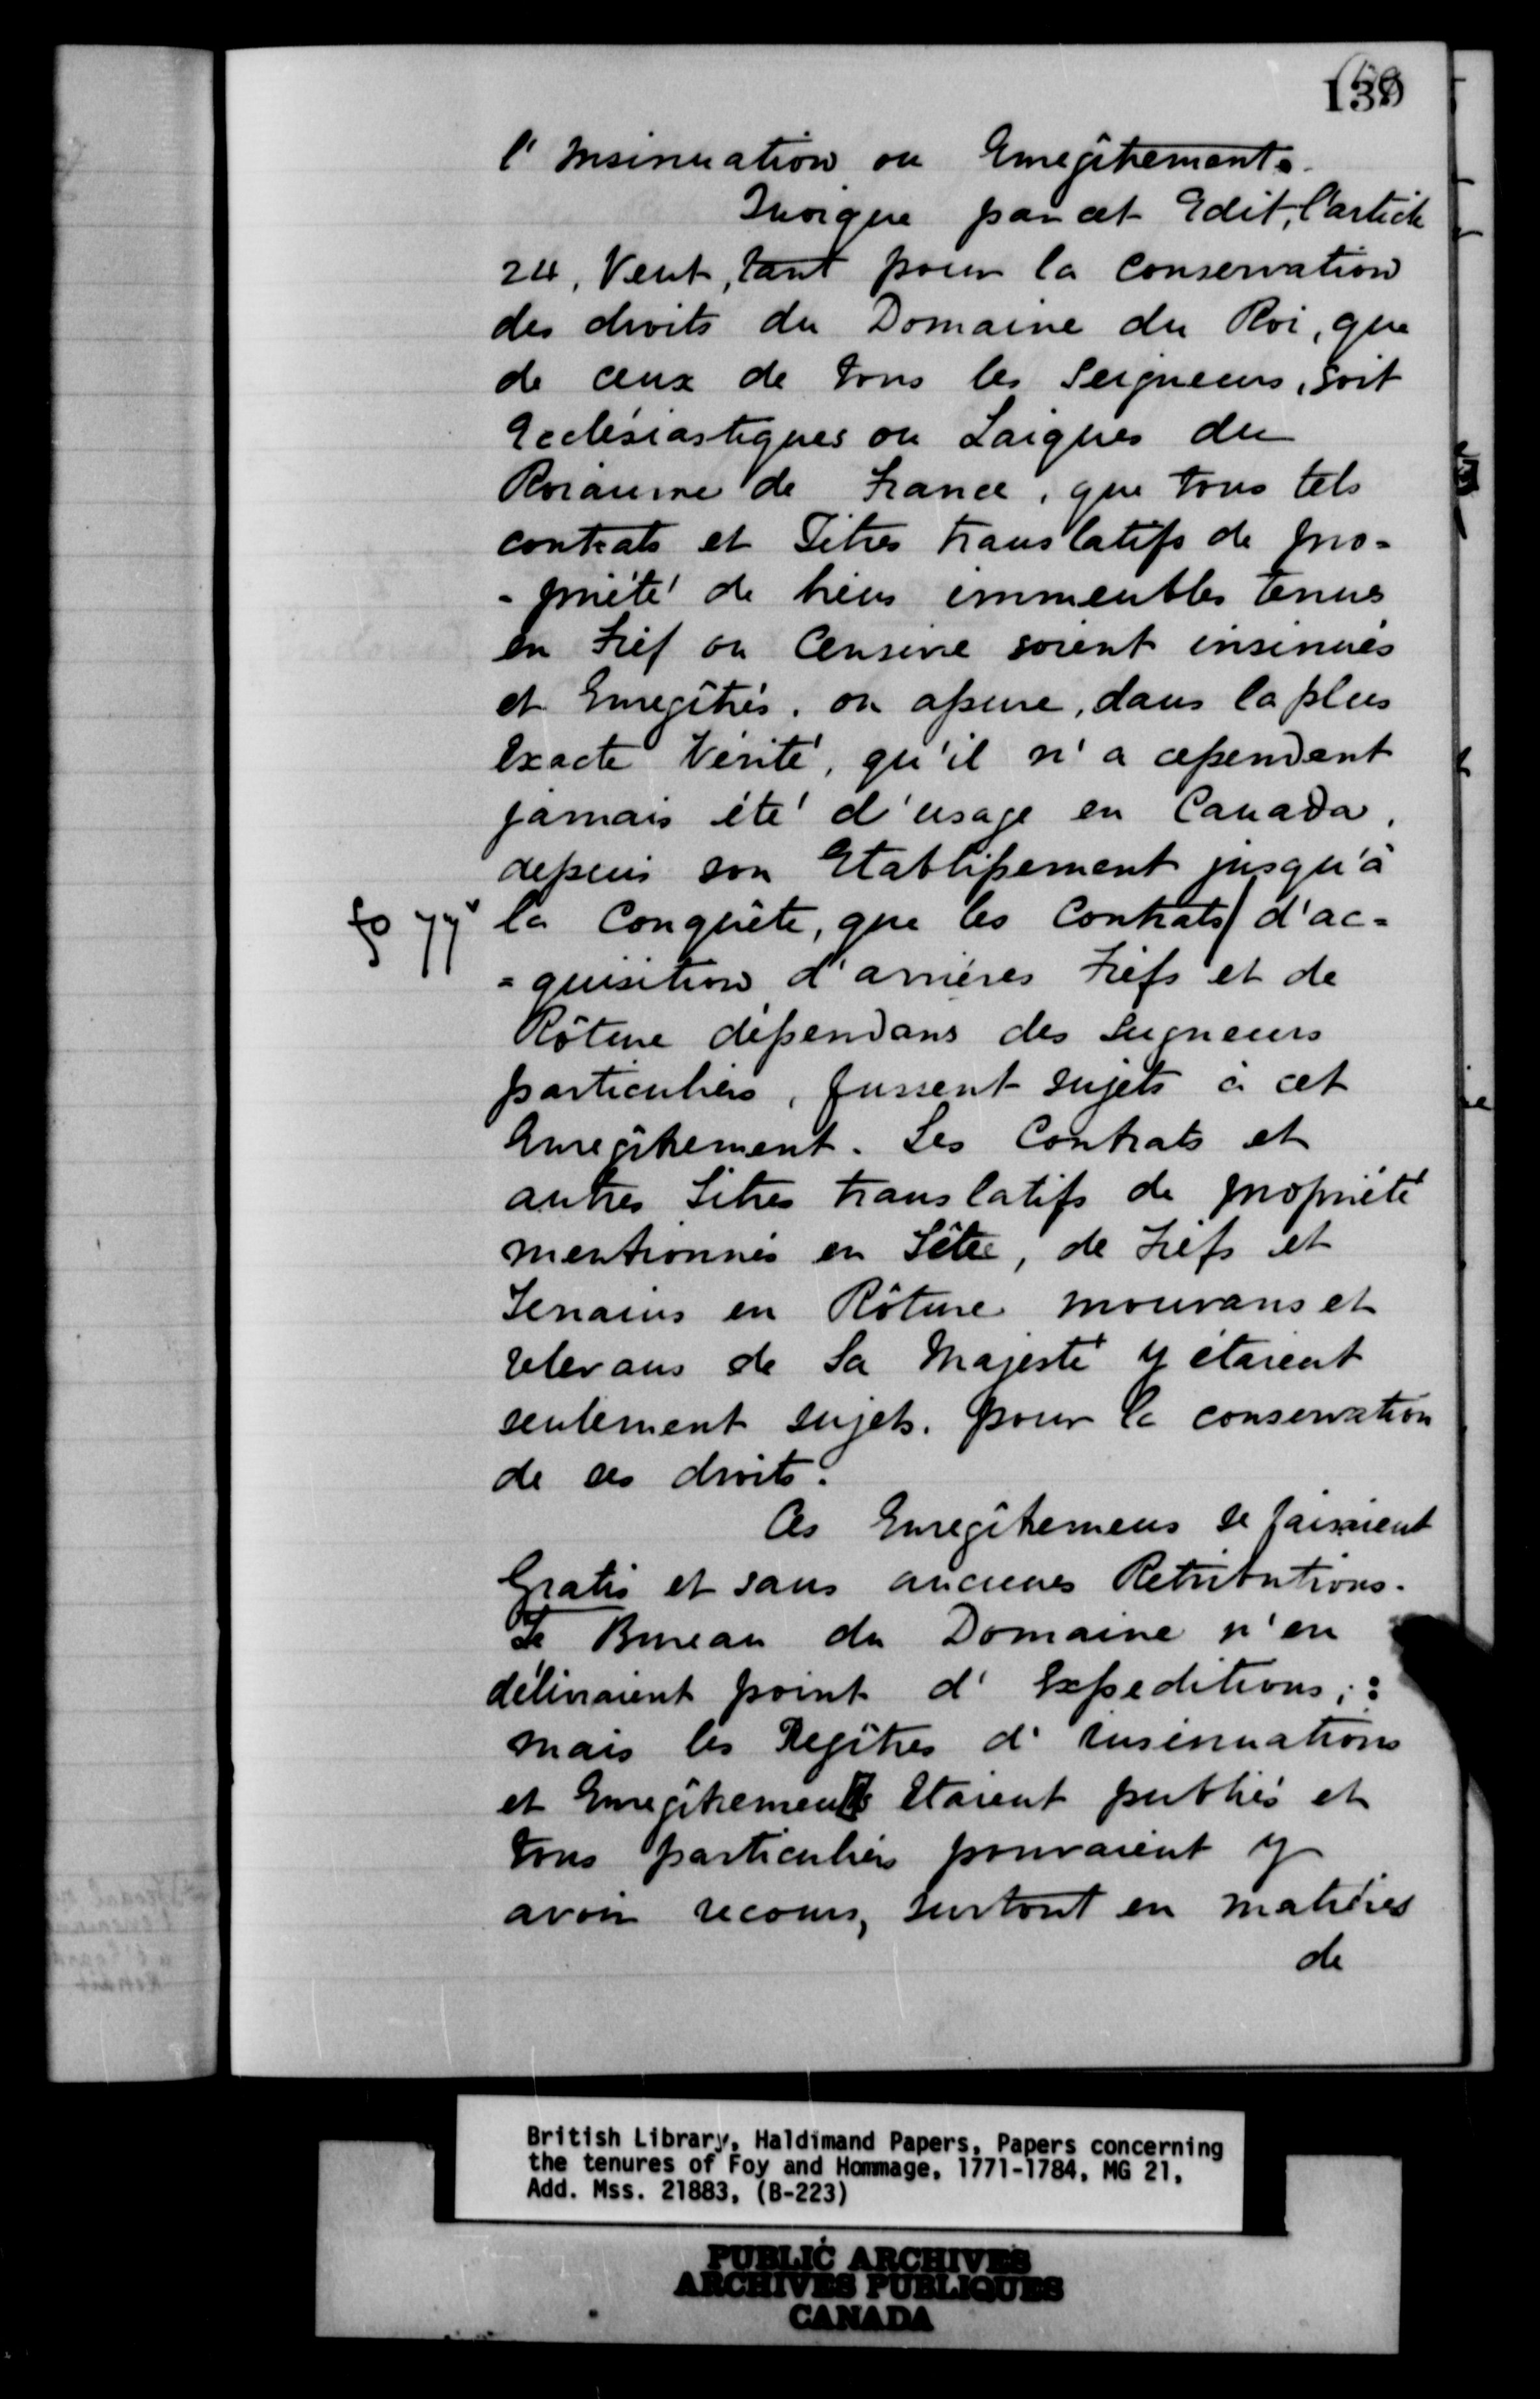 l'Insinuation ou Enregîtrement.
Quoique par cet Edit, l'article
24, Veut, tant pour la conservation
des droits du Domaine du Roi, que
de ceux de tous les Seigneurs, soit
Ecclésiastiques ou Laiques du
Roiaume de France, que tous tels
contrats et Titres translatifs de pro-
-priété de biens immeubles tenus
en Fief ou Censive soient insinués
et Enregîtrés. on assure, dans la plus
Exacte Vérité, qu'il n'a cependant
jamais été d'usage en Canada,
depuis son Etablissement jusqu'à
fo 77v la Conquête, que les Contrats/ d'ac=
=quisition d'arriéres Fiefs et de
Rôture dépendans des Seigneurs
particuliers, fussent sujets à cet
Enregîtrement. Les Contrats et
autres Titres translatifs de propriété
mentionnés en Tête, de Fiefs et
Terrains en Rôture mouvans et
relevans de Sa Majesté y étaient
seulement sujets. pour la conservation
de ses droits.
Ces Enregîtremens se faisaient
Gratis et sans aucunes Retributions.
Le Bureau du Domaine n'en
délivraient point d'Expeditions;:
mais les Regîtres d'Insinuations
et Enregîtrements Etaient publiés et
tous particuliers pouvaient y
avoir recours, surtout en matiéres
de
British Library, Haldimand Papers, Papers concerning
the tenures of Foy and Hommage, 1771-1784, MG 21,
Add. Mss. 21883, (B-223)
PUBLIC ARCHIVES
ARCHIVES PUBLIQUES
CANADA